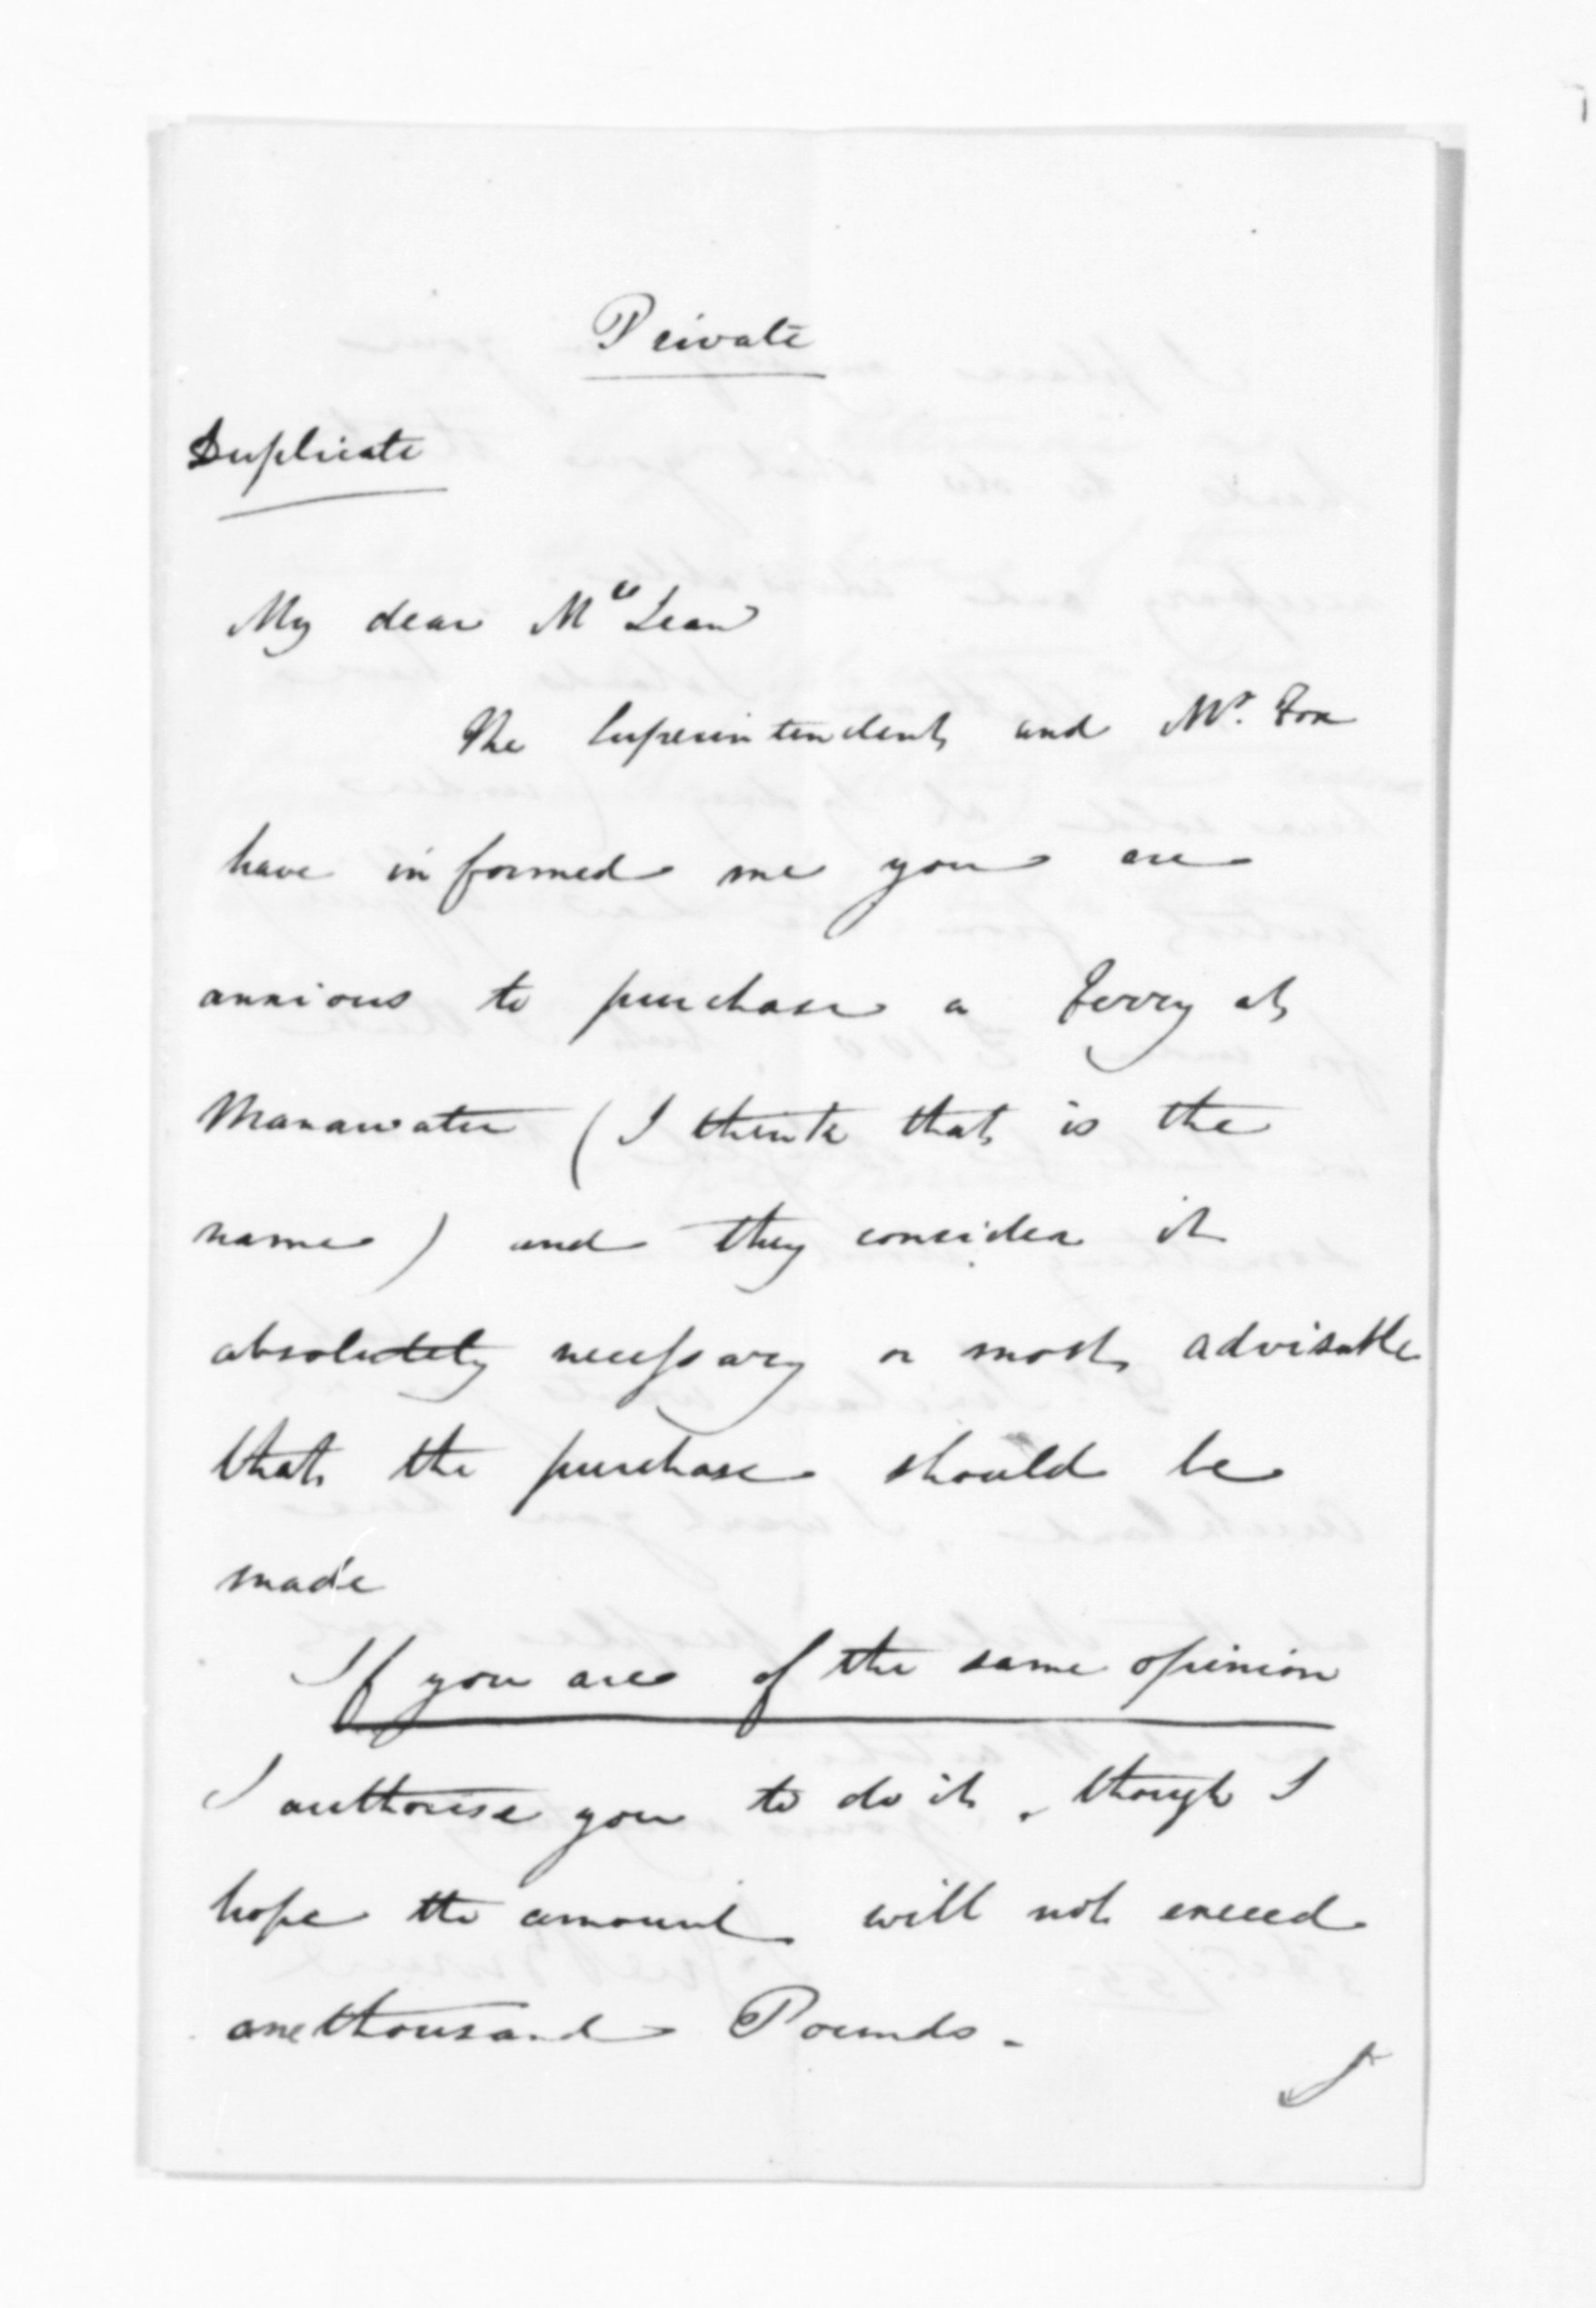 Private
Duplicate
My dear McLean
The Superintendent and Mr. Fox
have informed me you are
anxious to purchase a Ferry at
Manawatu (I think that is the
name) and they consider it
absolutely necessary or most advisable
that the purchase should be
made
If you are of the same opinion
I authorise you to do it, though I
hope the amount will not exceed
one thousand Pounds.
I